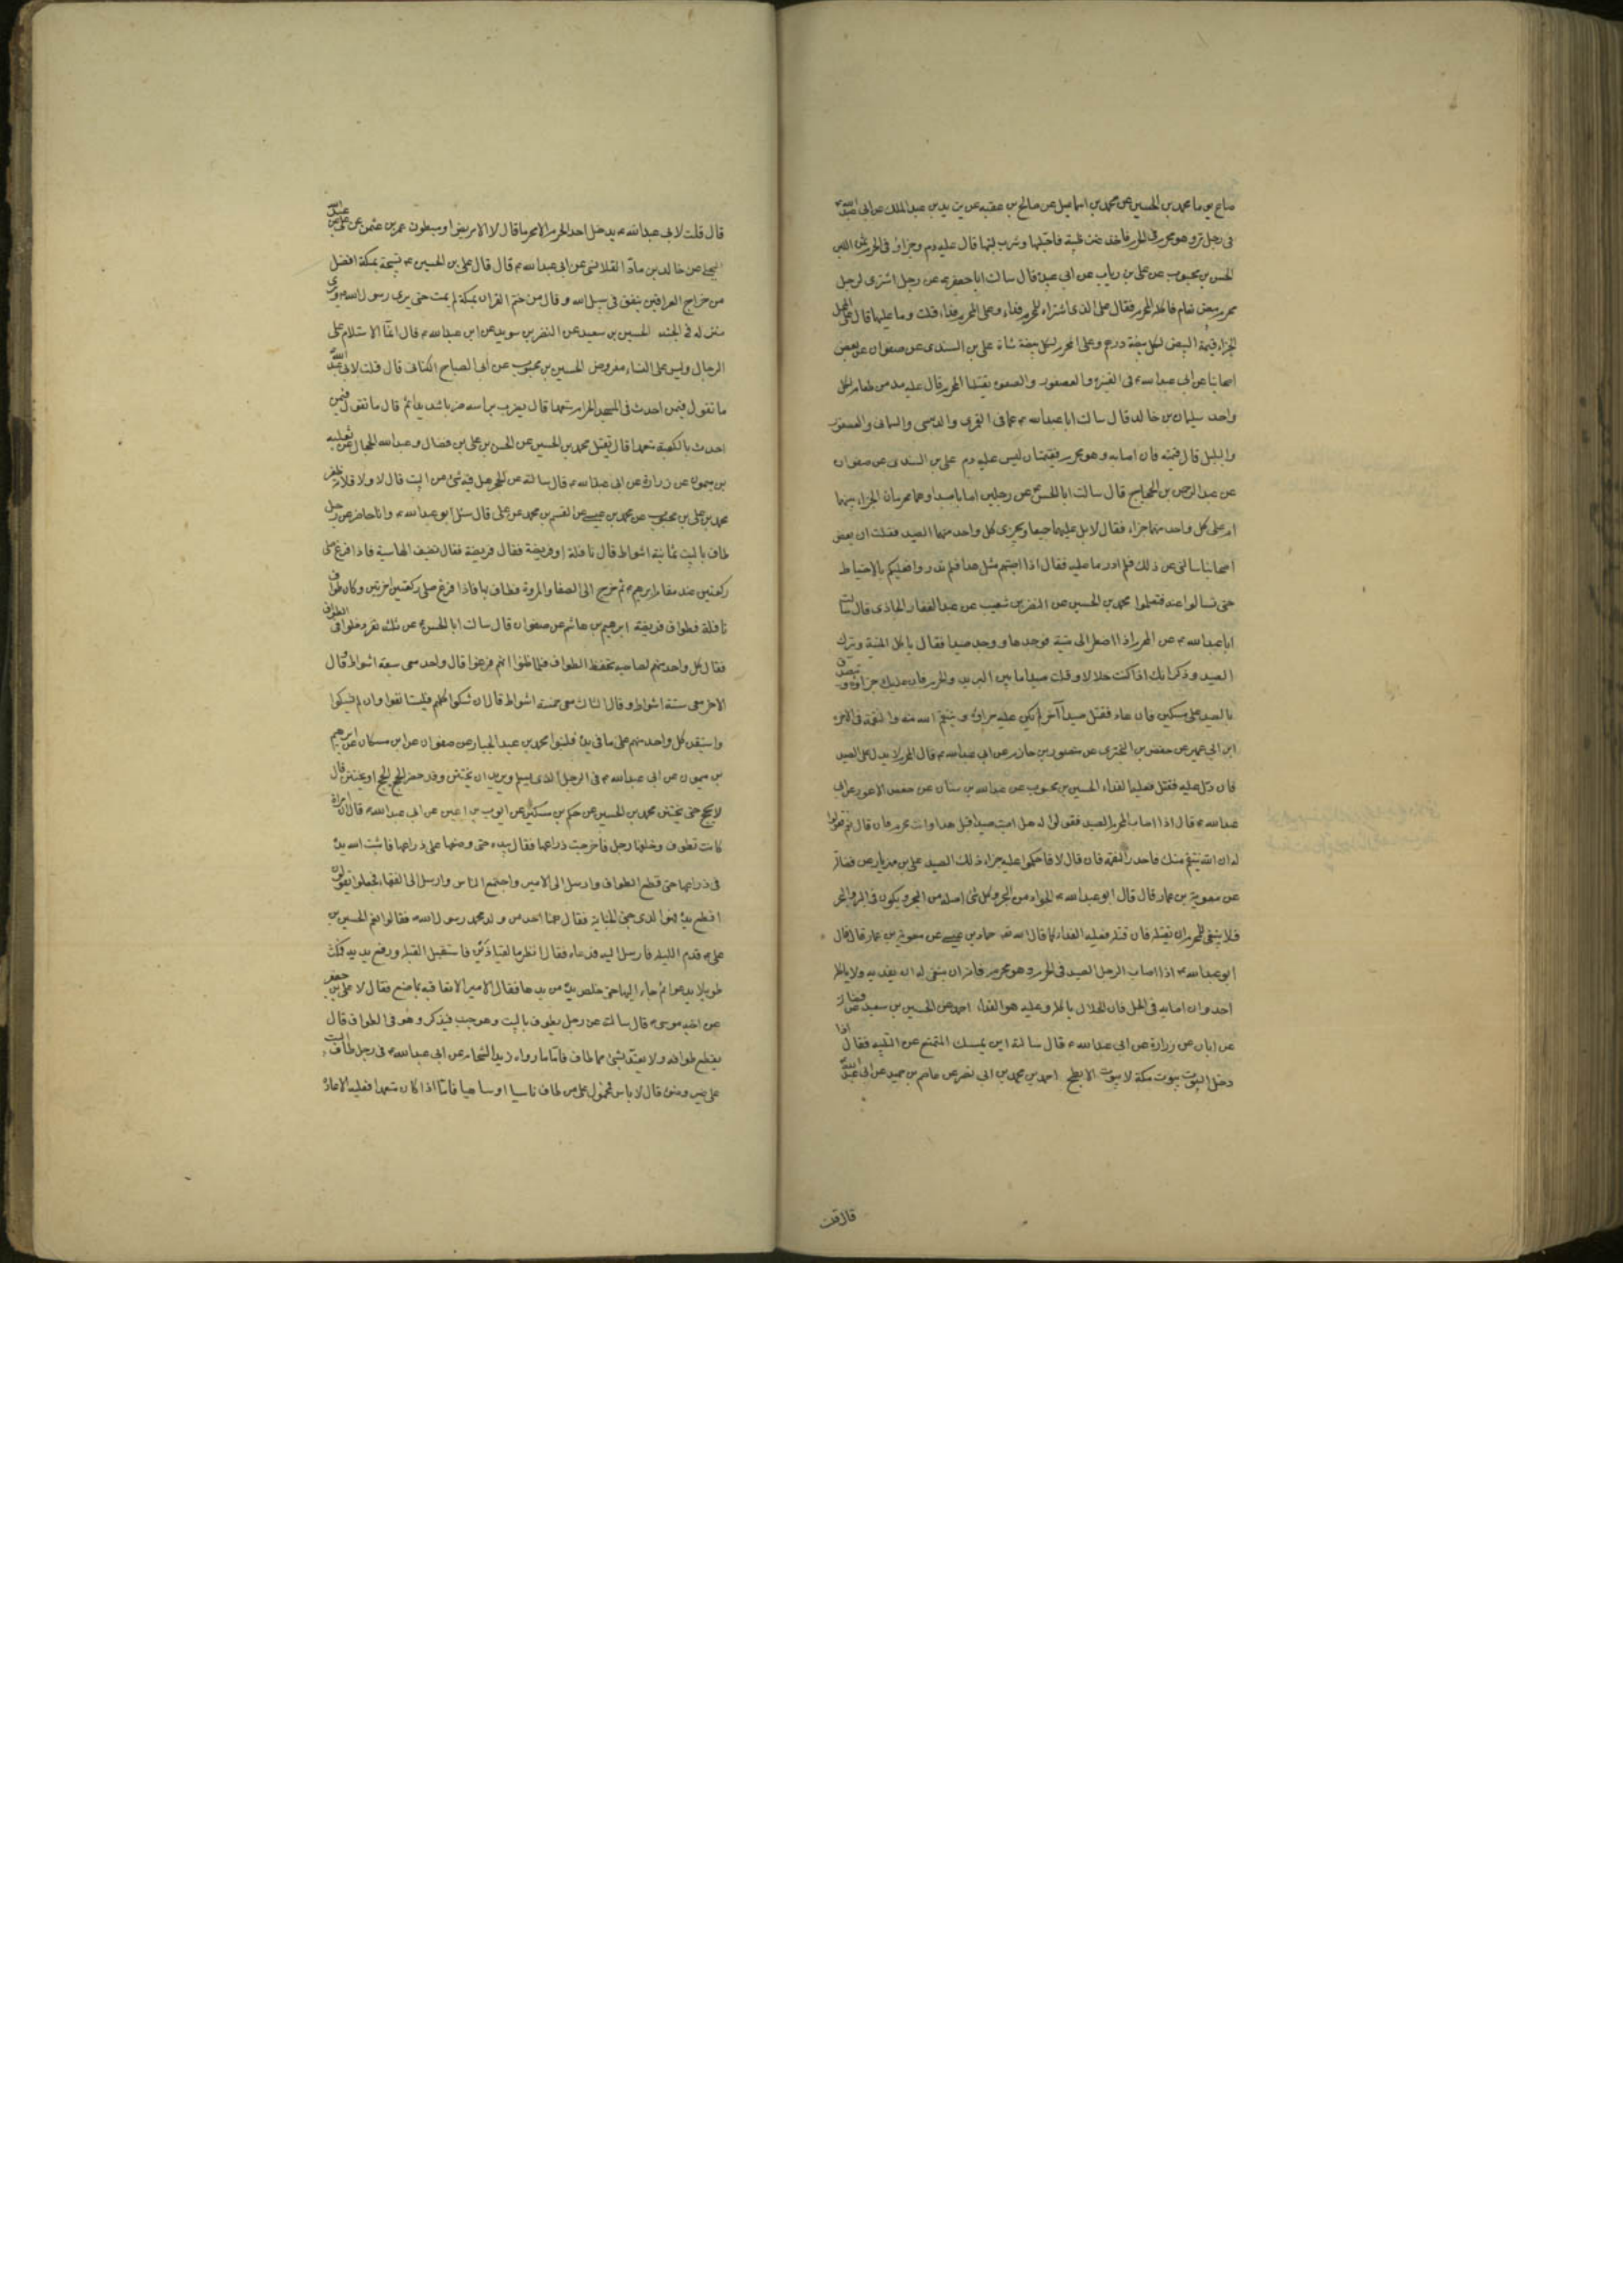 صاع يوما محمد بن الحسين عن محمد بن اسماعيل عن صالح بن عقبه عن يزيد بن عبد الملك عن ابى عبدالله
فى رجل مر وهو محرم فى الحرم فاخذ عنق ظبية فاحتلبها وشرب لبنها قال عليه دم وجزاؤه فى الحرم ثمن اللبن
الحسن بن محبوب عن على بن رياب عن ابى عبيدة قال سالت ابا جعفر عن رجل اشترى لرجل
محرم بيض نعام فاكله المحرم فقال على الذى اشتراه للمحرم فداء وعلى المحرم فداء قلت وما عليهما قال على المحل
الجزاء قيمة البيض لكل بيضة درهم وعلى المحرم لكل بيضة شاة على بن السندى عن صفوان عن بعض
اصحابنا عن ابى عبدالله فى القنبرة والعصفور والصعوة يقتلها المحرم قال عليه مد من طعام لكل
واحد سليمان بن خالد قال سالت ابا عبدالله عما فى القمرى والدبسى والسمانى والعصفور
والبلبل قال قيمته فان اصابه وهو محرم فقيمتان ليس عليه دم على بن السندى عن صفوان
عن عبد الرحمن بن الحجاج قال سالت ابا الحسن عن رجلين اصابا صيدا وهما محرمان الجزاء بينهما
ام على كل واحد منهما جزاء فقال لا بل عليهما جميعا ويجزى كل واحد منهما الصيد فقلت ان بعض
اصحابنا سالنى عن ذلك فلم ادر ما عليه فقال اذا اصبتم مثل هذا فلم تدروا فعليكم بالاحتياط
حتى تسالوا عنه فتعلموا محمد بن الحسين عن النضر بن شعيب عن عبد الغفار الجازى قال سالت
ابا عبدالله عن المحرم اذا اضطر الى ميتة فوجدها ووجد صيدا فقال ياكل الميتة ويترك
الصيد وذكر انك اذا كنت حلالا وقتلت صيدا ما بين البريد والحرم فان عليك جزاؤه و تصدق
بالصيد على مسكين فان عاد فقتل صيدا آخر لم يكن عليه جزاؤه وينتقم الله منه والنقمة فى الاخرة
ابن ابى عمير عن حفص بن البخترى عن منصور بن حازم عن ابى عبدالله قال المحرم لا يدل على الصيد
فان دل عليه فقتل فعليه الفداء الحسين بن محبوب عن عبدالله بن سنان عن حفص الاعور عن ابى
عبدالله قال اذا اصاب المحرم الصيد فقولوا له هل اصبت صيدا قبل هذا وانت محرم فان قال نعم فقولوا
له ان الله منتقم منك فاحذر النقمة فان قال لا فاحكموا عليه جزاء ذلك الصيد على بن مهزيار عن فضالة
عن معوية بن عمار قال قال ابو عبدالله الجراد من البحر وكل شئ اصله من البحر ويكون فى البر والبحر
فلا ينبغى للمحرم ان يقتله فان قتله فعليه الفداء كما قال الله حماد بن عيسى عن معوية بن عمار قال قال
ابو عبدالله اذا اصاب الرجل الصيد فى الحرم وهو محرم فانه ينبغى له ان يفديه ولا ياكله
احد وان اصابه فى الحل فان الحلال ياكله وعليه هو الفداء احمد عن الحسين بن سعيد عن فضالة
عن ابان عن زرارة عن ابى عبدالله قال سالته اين يمسك المتمتع عن التلبية فقال اذا
دخل البيوت بيوت مكة لا بيوت الابطح احمد بن محمد بن ابى نصر عن عاصم بن حميد عن ابى عبدالله
قال قلت
قال قلت لابى عبدالله يدخل احد الحرم الا محرما قال لا الا مريض او مبطون عمر بن عثمن عن على بن عبدالله
البجلى عن خالد بن ماد القلانسى عن ابى عبدالله قال قال على بن الحسين تسبيحة بمكة افضل
من خراج العراقين ينفق فى سبيل الله وقال من ختم القران بمكة لم يمت حتى يرى رسول الله ويرى
منزله فى الجنة الحسين بن سعيد عن النضر بن سويد عن ابى عبدالله قال انما الاستلام على
الرجال وليس على النساء مفروض الحسن بن محبوب عن ابى الصباح الكنانى قال قلت لابى عبدالله
ما تقول فيمن احدث فى المسجد الحرام متعمدا قال يضرب براسه ضربا شديدا ثم قال ما تقول فيمن
احدث بالكعبة متعمدا قال يقتل محمد بن الحسين عن الحسن بن على بن فضال وعبدالله الحجال عن ثعلبه
بن ميمون عن زرارة عن ابى عبدالله قال سالته عن الحجر هل فيه شئ من البيت قال لا ولا قلامة ظفر
محمد بن على بن محبوب عن محمد بن عيسى عن القسم بن محمد عن على قال سئل ابو عبدالله وانا حاضر عن رجل
طاف بالبيت ثمانية اشواط قال نافلة او فريضة فقال فريضة فقال يضيف اليها ستة فاذا فرغ صلى
ركعتين عند مقام ابرهيم ثم خرج الى الصفا والمروة فطاف بها فاذا فرغ صلى ركعتين اخرتين وكان طواف
نافلة وطواف فريضة ابرهيم بن هاشم عن صفوان قال سالت ابا الحسن عن ثلثة نفر دخلوا فى الطواف
فقال كل واحد منهم لصاحبه تحفظ الطواف فلما ظنوا انهم فرغوا قال واحد معى سبعة اشواط وقال
الاخر معى ستة اشواط وقال الثالث معى خمسة اشواط قال ان شكوا كلهم فليستانفوا وان لم يشكوا
واستيقن كل واحد منهم على ما فى يده فليبنوا محمد بن عبد الجبار عن صفوان عن ابن مسكان عن ابرهيم
بن ميمون عن ابى عبدالله فى الرجل الذى يسلم ويريد ان يختتن وقد حضر الحج ايحج او يختتن قال
لا يحج حتى يختتن محمد بن الحسين عن حكم بن مسكين عن ايوب بن اعين عن ابى عبدالله قال ان امراة
كانت تطوف وخلفها رجل فاخرجت ذراعها فقال بيده حتى وضعها على ذراعها فاثبت الله يده
فى ذراعها حتى قطع الطواف وارسل الى الامير واجتمع الناس وارسل الى الفقهاء فجعلوا يقولون
اقطع يده فهو الذى جنى الجناية فقال ههنا احد من ولد محمد رسول الله فقالوا نعم الحسين بن
على قدم الليلة فارسل اليه فدعاه فقال انظر ما لقيا ذان فاستقبل القبلة ورفع يديه فمكث
طويلا يدعو ثم جاء اليها حتى خلص يده من يدها فقال الامير الا نعاقبه بما صنع فقال لا على بن جعفر
عن اخيه موسى قال سالته عن رجل يطوف بالبيت وهو جنب فيذكر وهو فى الطواف قال
يقطع طوافه ولا يعتد بشئ مما طاف فاما ما رواه زيد الشحام عن ابى عبدالله فى رجل طاف بالبيت
على غير وضوء قال لا باس فمحمول على من طاف ناسيا او ساهيا فاما اذا كان متعمدا فعليه الاعادة